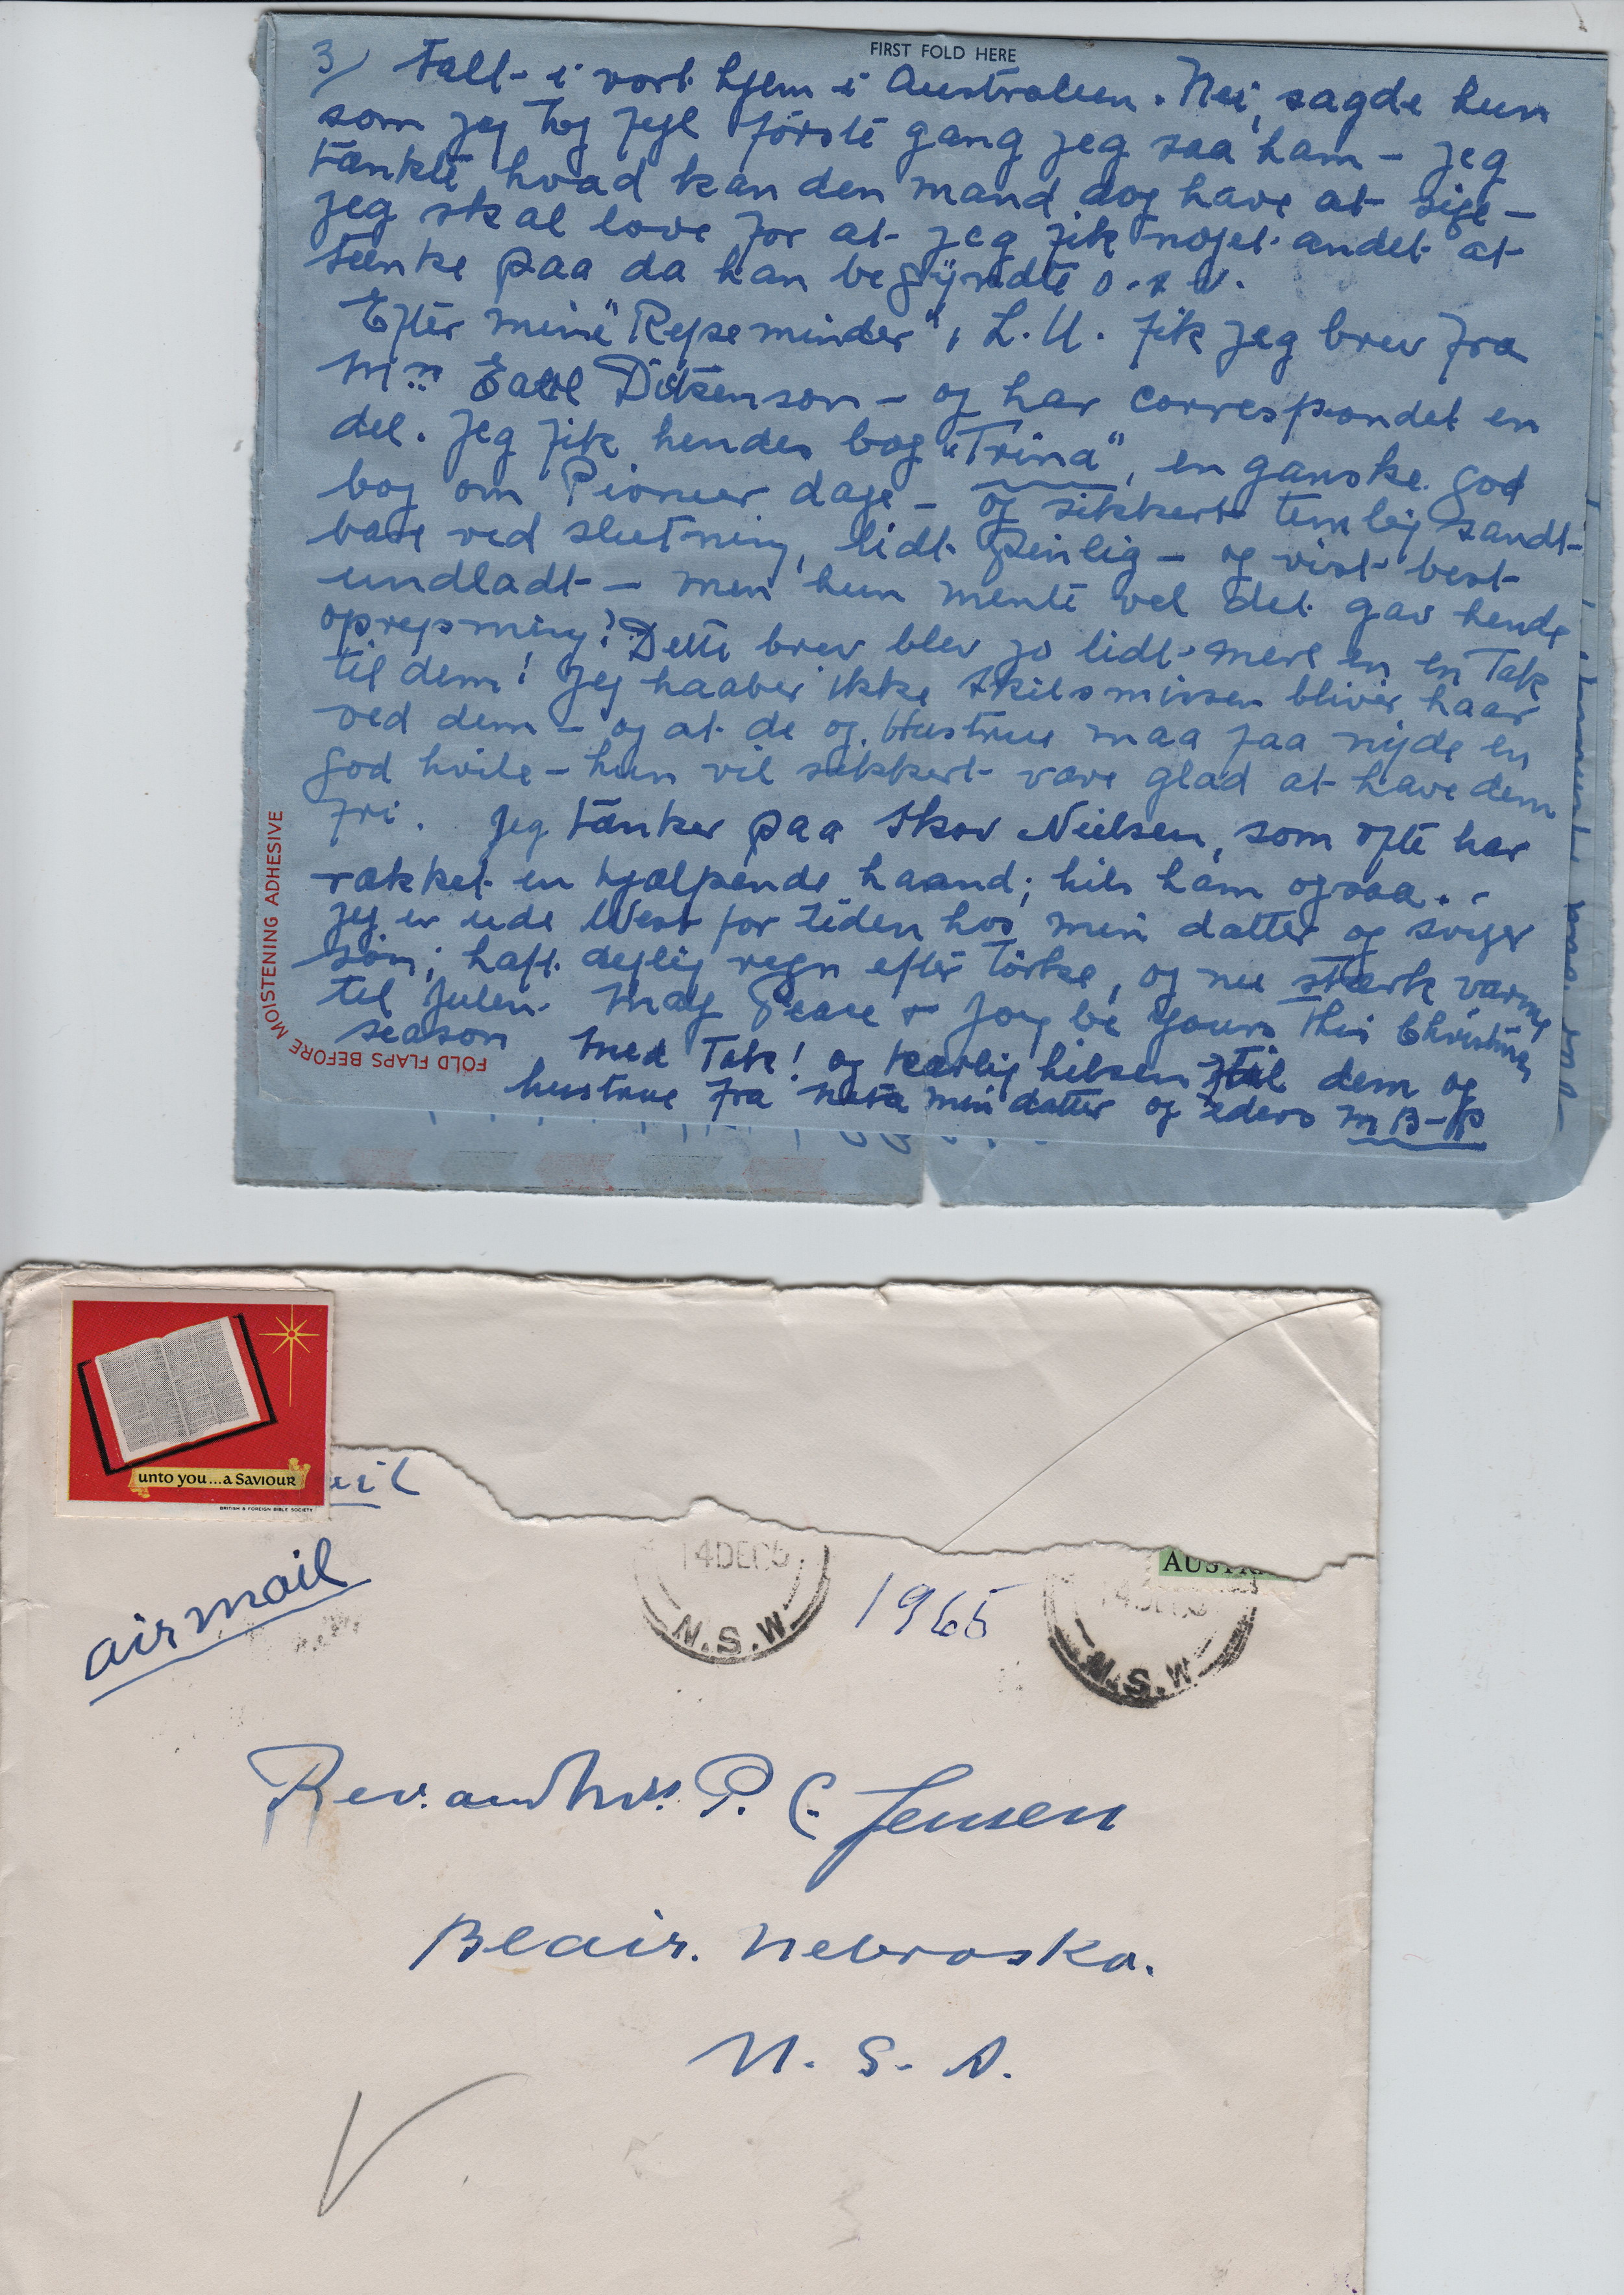 FIRST FOLD HERE
3/ talt i vort hjem i Australien. Nei, sagde hun
som jeg tog fejl förste gang jeg saa ham - jeg
tænkte hvad kan den mand dog have at sige -
jeg skal love for at jeg fik noget andet at
tænke paa da han begÿndte o.s.v.
Efter mine "Rejseminder", L.U. fik jeg brev fra
Mrs Dikenson - og har correspondet en
del. Jeg fik hendes bog "Trina", en ganske god
bog om Pioneer dage - og sikkert temlig sandt -
bare ved slutning, lidt pinlig - og vist best
undladt - men hun mente vel det gav hende
oprejsning? Dette brev blev jo lidt mere en en Tak
til dem! Jeg haaber ikke skilsmissen bliver haar
ved dem - og at de og Hustrue maa faa nyde en
god hvile - hun vil sikkert være glad at have dem
fri. Jeg tænker paa Skov Nielsen, som ofte har
rækket en hjælpende haand; hils ham ogsaa. -
Jeg er ude West for tiden hos min datter og sviger
sön; haft dejlig regn efter törke, og nu stærk varme
til Julen. May Peace + Joy be Yours This Christmas
season Med Tak! og kærlig hilsen til dem og
hustrue fra min datter og eders M B-P
MOISTENING ADHESIVE
FOLD FLAPS BEFORE
unto you...a SAVIOUR
BRITISH & FOREIGN BIBLE SOCIETY
air mail
14 DEC 5
N.S.W.
1965
AUSTRA
14 DEC 5
N.S.W.
Rev. and Mrs. P. C. Jensen
Blair. Nebraska.
U. S. A.